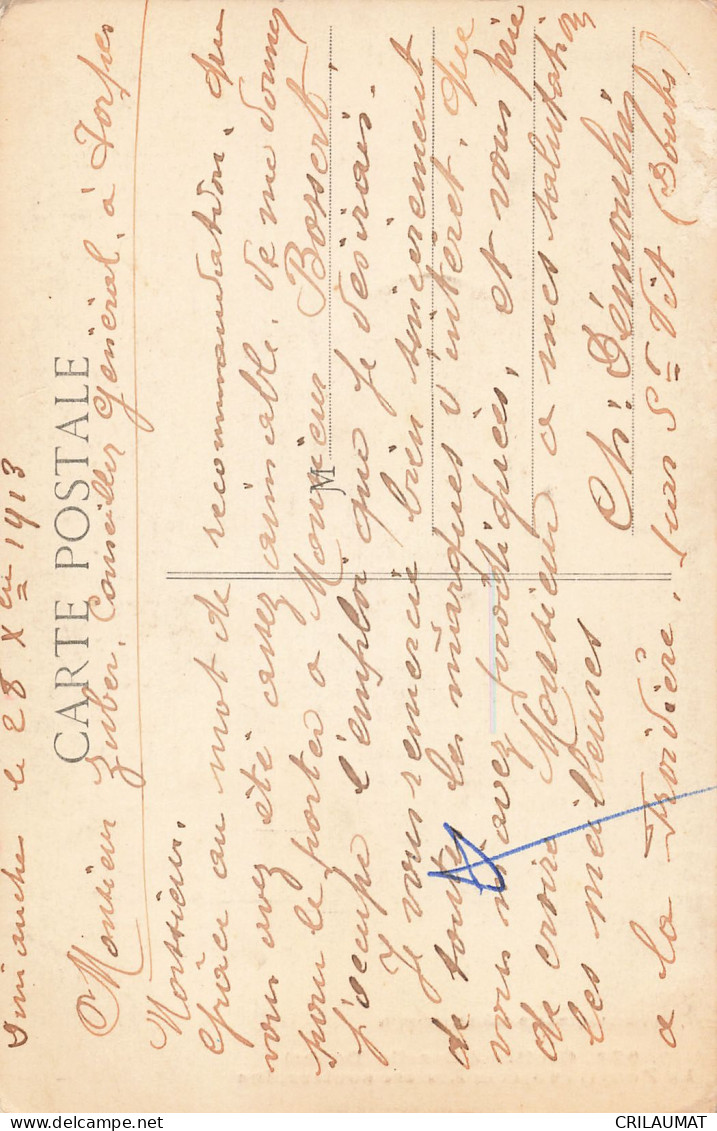 Dimanche le 28 Xbre 1913
CARTE POSTALE
Monsieur
Zuber, Conseiller Général, à Torpes
Monsieur,
Grâce au mot de recommandation, que
vous avez été assez aimable, de me donner
pour le porter a Monsieur Bossert,
M
j'occupe l'emploi que je désirais.
Je vous remercie bien sincèrement
de toute les marques d'intéret, que
vous m'avez prodiguées, et vous prie
de croire Monsieur a mes salutations
les meilleures
Ch. Démoulin
a la Froidière, par St Vit (Doubs)
CRILAUMAT